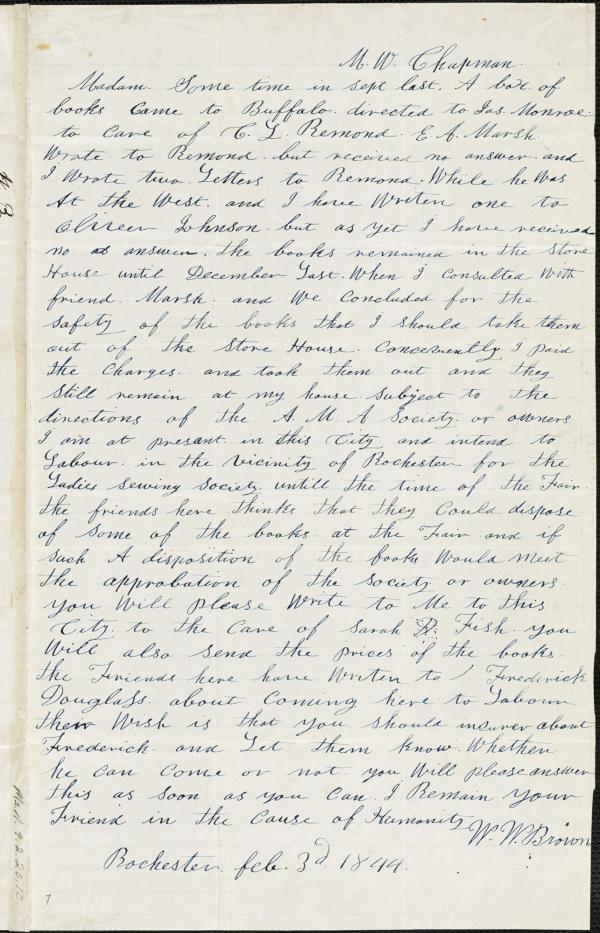 M. W. Chapman.
Madam. Some time in Sept last. A box of
books Came to Buffalo. directed to Jas. Monroe.
to Care of C. L. Remond. E. A. Marsh.
Wrote to Remond. but received no answer. and
I Wrote two Letters to Remond. While he Was
At the West. and I have Writen one to
Oliveer Johnson. but as yet I have received
no answer. the books remained in the Store
House until December Last. When I Consulted With
friend. Marsh. and We Concluded for the
Safety of the books that I should take them
out of the Store House. Concequently I paid
the Charges. and took them out and they
Still remain at my house Subject to the
directions of the A. M. A Society. or owners
I am at presant. in this City and intend to
Labour. in the vicinity of Rochester for the
Ladies Sewing Society. untill the time of the Fair.
the friends here thinks that they Could dispose
of Some of the books. at the Fair and if
such A disposition of the books Would meet
the approbation of the Society. or owners.
you Will please Write to Me to this
City. to the Care of Sarah D. Fish. you
Will also send the prices of the books.
the Friends here have Writen to Frederick
Douglass. about Coming here to Labour
their Wish is that you should incurer about
Frederick. and Let them know. Whether
he Can Come or not. you Will please answer
this as Soon as you Can. I Remain your
Friend in the Cause of Humanity.
W. W. Brown
Rochester. feb. 3d. 1844.
Ms.A.9.2.20.10